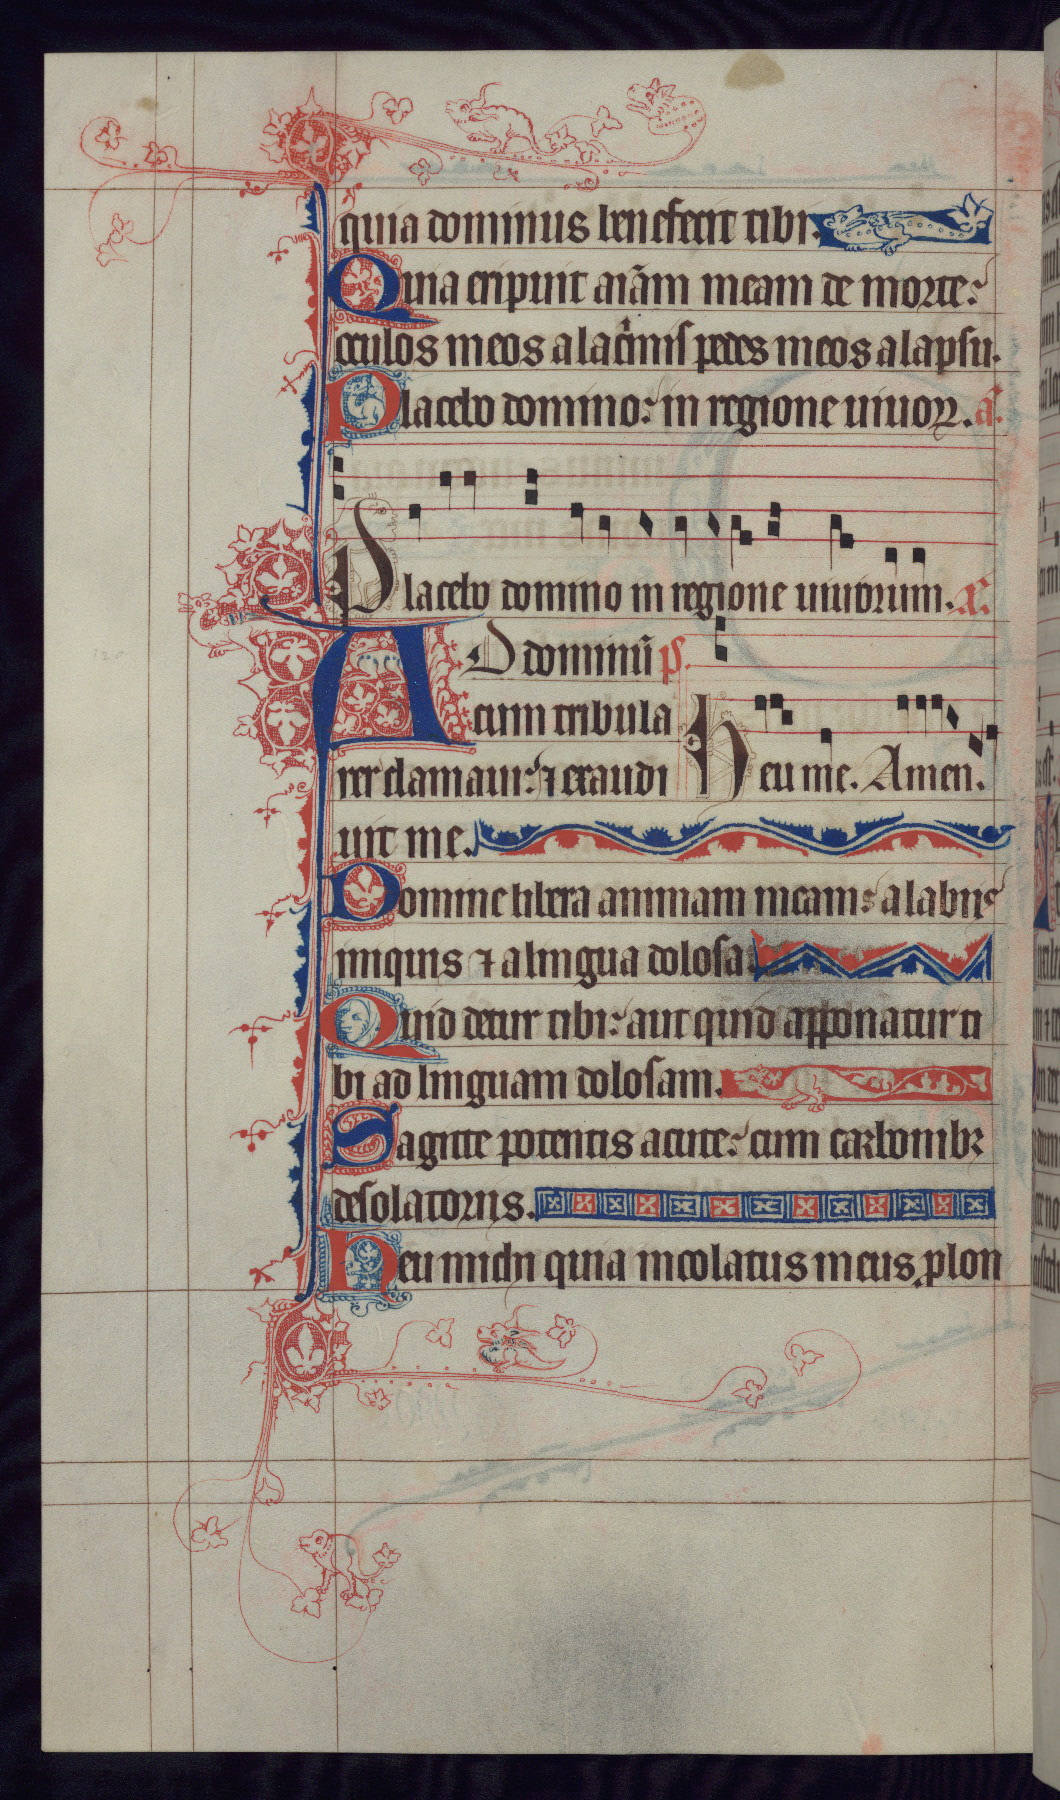 quia dominus benefecit tibi.
Quia eripuit aīam meam de morte:
oculos meos a lac̄mis pedes meos a lapsu.
Placebo domino: in regione uiuoꝝ. a.
Placebo domino in regione uiuorum. 
AD dominū p̄.
cum tribula
rer clamaui: ⁊ exaudi
uit me.
Heu me. Amen.
Domine libera animam meam: a labiis
iniquis ⁊ a lingua dolosa.
Quid detur tibi: aut quid apponatur ti
bi ad linguam dolosam.
Sagitte potentis acute: cum carbonibꝫ
desolatoriis.
Heu michi quia incolatus meus ꝓlon